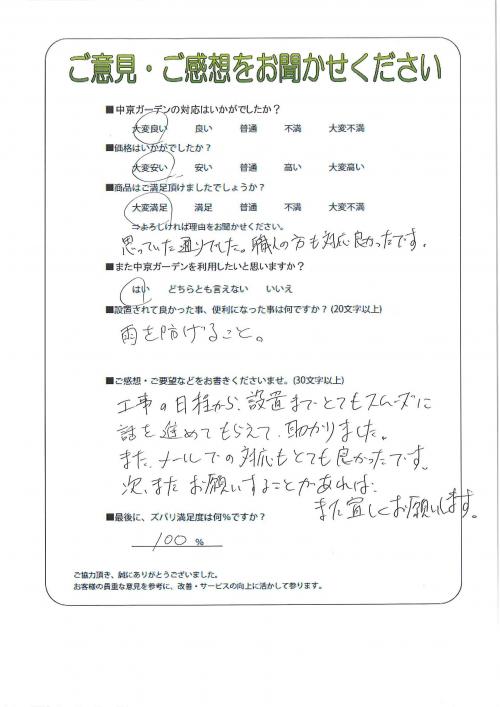 ご意見・ご感想をお聞かせください
■中京ガーデンの対応はいかがでしたか？
大変良い 良い 普通 不満 大変不満
■価格はいかがでしたか？
大変安い 安い 普通 高い 大変高い
■商品はご満足頂けましたでしょうか？
大変満足 満足 普通 不満 大変不満
⇒よろしければ理由をお聞かせください。
思っていた通りでした。職人の方も対応良かったです。
■また中京ガーデンを利用したいと思いますか？
はい どちらとも言えない いいえ
■設置されて良かった事、便利になった事は何ですか？(20文字以上)
雨を防げること。
■ご感想・ご要望などをお書きくださいませ。(30文字以上)
工事の日程から、設置までとてもスムーズに
話を進めてもらえて、助かりました。
また、メールでの対応もとても良かったです。
次、またお願いすることがあれば、
また宜しくお願いします。
■最後に、ズバリ満足度は何％ですか？
100 %
ご協力頂き、誠にありがとうございました。
お客様の貴重な意見を参考に、改善・サービスの向上に活かして参ります。